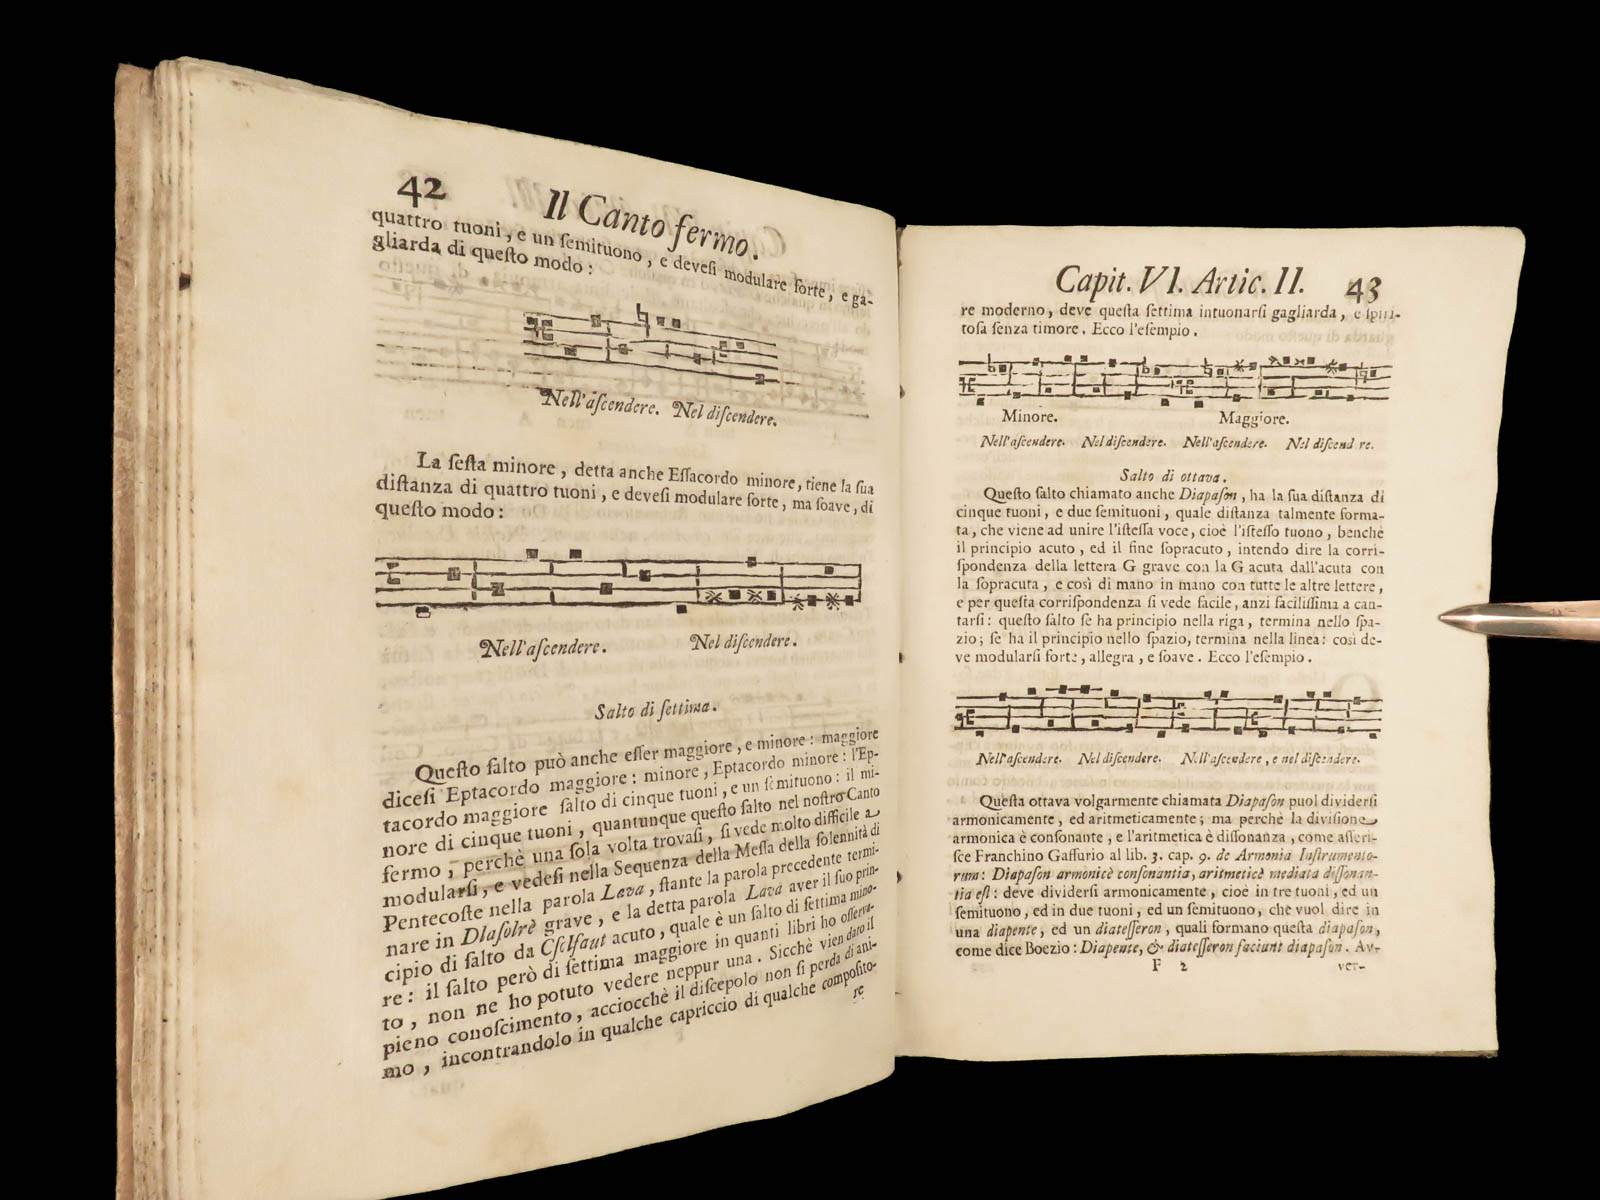 42
Il Canto fermo.
quattro tuoni, e un ſemituono, e deveſi modulare forte, e ga-
gliarda di queſto modo:
Nell'aſcendere. Nel diſcendere.
La ſeſta minore, detta anche Eſſacordo minore, tiene la ſua
diſtanza di quattro tuoni, e deveſi modulare forte, ma ſoave, di
queſto modo:
Nell'aſcendere. Nel diſcendere.
Salto di ſettima.
Queſto ſalto può anche eſſer maggiore, e minore: maggiore
diceſi Eptacordo maggiore: minore, Eptacordo minore: l'Ep-
tacordo maggiore ſalto di cinque tuoni, e un ſemituono: il mi-
nore di cinque tuoni, quantunque queſto ſalto nel noſtro Canto
fermo, perchè una ſola volta trovaſi, ſi vede molto difficile a
modularſi, e vedeſi nella Sequenza della Meſſa della ſolennità di
Pentecoſte nella parola Lava, ſtante la parola precedente termi-
nare in Dlaſolrè grave, e la detta parola Lava aver il ſuo prin-
cipio di ſalto da Cſolfaut acuto, quale è un ſalto di ſettima mino-
re: il ſalto però di ſettima maggiore in quanti libri ho oſſerva-
to, non ne ho potuto vedere neppur una. Sicchè vien daro il
pieno conoſcimento, acciocchè il diſcepolo non ſi perda di ani-
mo, incontrandolo in qualche capriccio di qualche compoſito-
re
Capit. VI. Artic. II. 43
re moderno, deve queſta ſettima intuonarſi gagliarda, e ſpiri-
toſa ſenza timore. Ecco l'eſempio.
Minore. Maggiore.
Nell'aſcendere. Nel diſcendere. Nell'aſcendere. Nel diſcend re.
Salto di ottava.
Queſto ſalto chiamato anche Diapaſon, ha la ſua diſtanza di
cinque tuoni, e due ſemituoni, quale diſtanza talmente forma-
ta, che viene ad unire l'iſteſſa voce, cioè l'iſteſſo tuono, benchè
il principio acuto, ed il fine ſopracuto, intendo dire la corri-
ſpondenza della lettera G grave con la G acuta dall'acuta con
la ſopracuta, e così di mano in mano con tutte le altre lettere,
e per queſta corriſpondenza ſi vede facile, anzi faciliſſima a can-
tarſi: queſto ſalto ſe ha principio nella riga, termina nello ſpa-
zio; ſe ha il principio nello ſpazio, termina nella linea: così de-
ve modularſi forte, allegra, e ſoave. Ecco l'eſempio.
Nell'aſcendere. Nel diſcendere. Nell'aſcendere, e nel diſcendere.
Queſta ottava volgarmente chiamata Diapaſon puol dividerſi
armonicamente, ed aritmeticamente; ma perchè la diviſione
armonica è conſonante, e l'aritmetica è diſſonanza, come aſſeri-
ſce Franchino Gaffurio al lib. 3. cap. 9. de Armonia Inſtrumento-
rum: Diapaſon armonicè conſonantia, aritmeticè mediata diſſonan-
tia eſt: deve dividerſi armonicamente, cioè in tre tuoni, ed un
ſemituono, ed in due tuoni, ed un ſemituono, che vuol dire in
una diapente, ed un diateſſeron, quali formano queſta diapaſon,
come dice Boezio: Diapente, & diateſſeron faciunt diapaſon. Av-
F 2 ver-